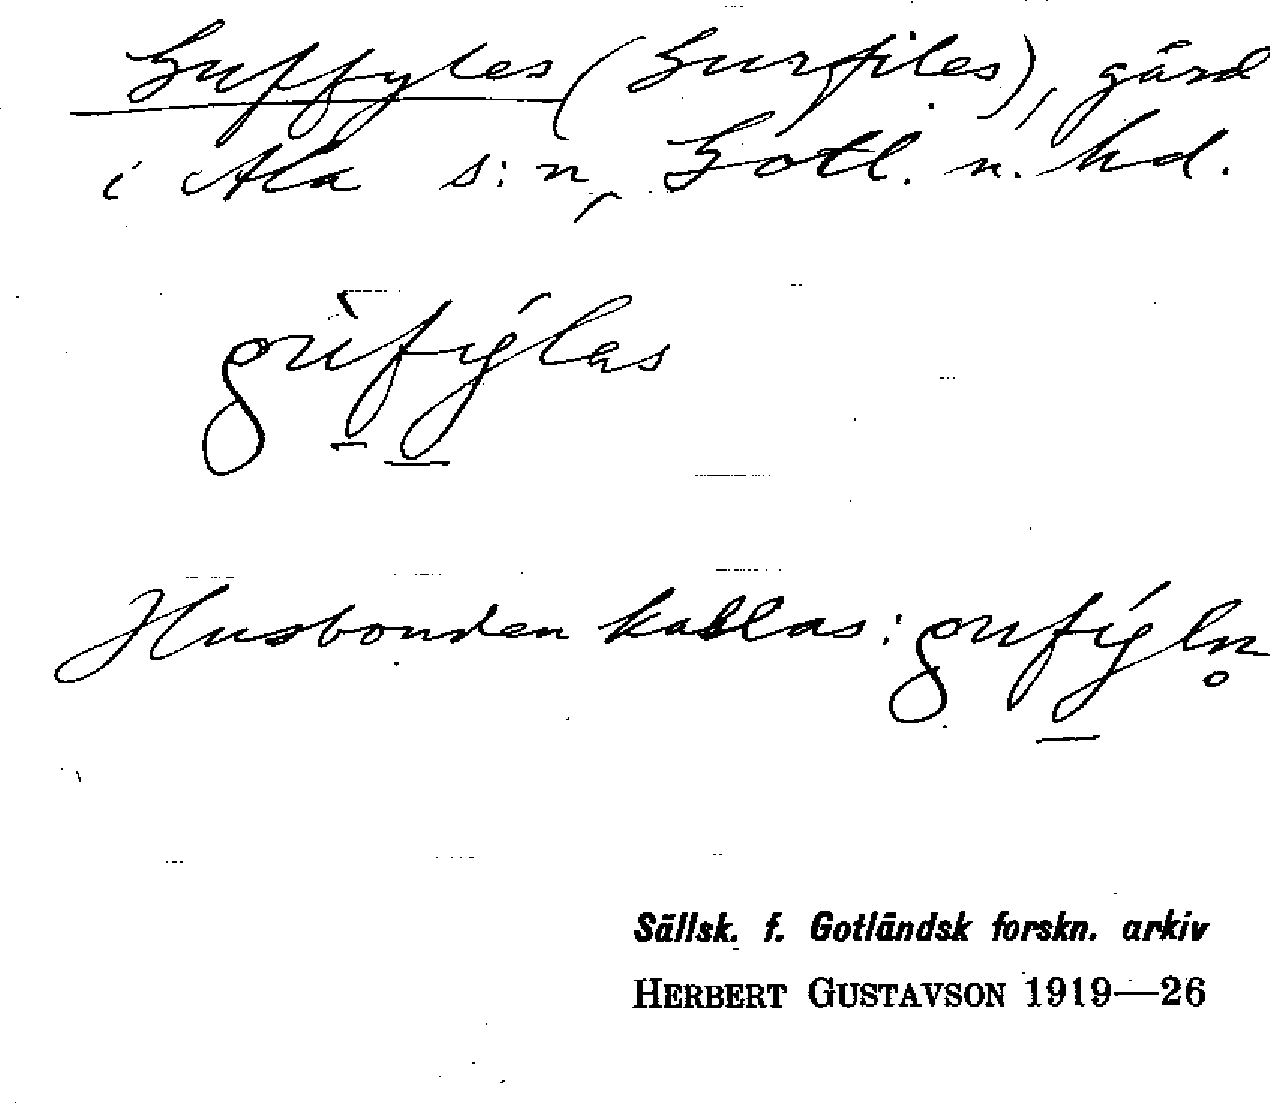 Guffyles (Gurfiles), gård
i Ala s:n, Gotl. n. hd.
gùfýlas
Husbonden kallas: gufýln̥
Sällsk. f. Gotländsk forskn. arkiv
HERBERT GUSTAVSON 1919—26